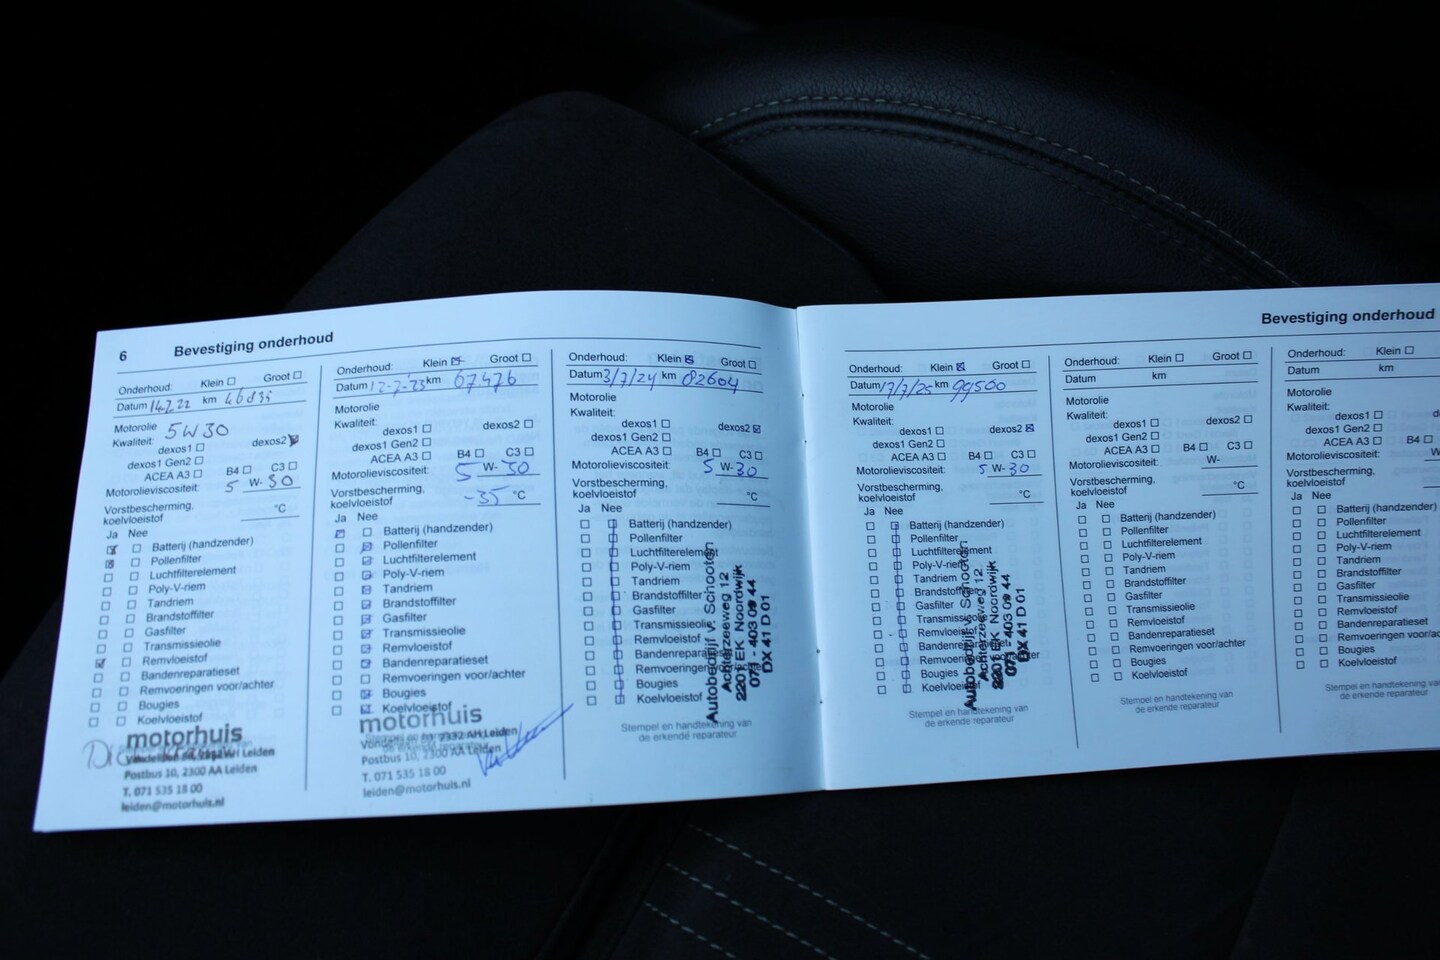 6 Bevestiging onderhoud
Onderhoud: Klein Groot
Datum 14.7.22 km
Motorolie 5W30
Kwaliteit: dexos2
dexos1
dexos1 Gen2
ACEA A3 B4 C3
Motorolieviscositeit: 5 W- 30
Vorstbescherming,
koelvloeistof °C
Ja Nee
Batterij (handzender)
Pollenfilter
Luchtfilterelement
Poly-V-riem
Tandriem
Brandstoffilter
Gasfilter
Transmissieolie
Remvloeistof
Bandenreparatieset
Remvoeringen voor/achter
Bougies
Koelvloeistof
motorhuis
Leiden
Postbus 10, 2300 AA Leiden
T. 071 535 18 00
leiden@motorhuis.nl
Onderhoud: Klein Groot
Datum 12-7-'23 km 67476
Motorolie
Kwaliteit:
dexos1 dexos2
dexos1 Gen2
ACEA A3 B4 C3
Motorolieviscositeit: 5 W- 30
Vorstbescherming,
koelvloeistof -35 °C
Ja Nee
Batterij (handzender)
Pollenfilter
Luchtfilterelement
Poly-V-riem
Tandriem
Brandstoffilter
Gasfilter
Transmissieolie
Remvloeistof
Bandenreparatieset
Remvoeringen voor/achter
Bougies
Koelvloeistof
motorhuis
2332 AH Leiden
Postbus 10, 2300 AA Leiden
T. 071 535 18 00
leiden@motorhuis.nl
Onderhoud: Klein Groot
Datum 3/7/24 km 82604
Motorolie
Kwaliteit:
dexos1 dexos2
dexos1 Gen2
ACEA A3 B4 C3
Motorolieviscositeit: 5 W- 30
Vorstbescherming,
koelvloeistof °C
Ja Nee
Batterij (handzender)
Pollenfilter
Luchtfilterelement
Poly-V-riem
Tandriem
Brandstoffilter
Gasfilter
Transmissieolie
Remvloeistof
Bandenreparatieset
Remvoeringen
Bougies
Koelvloeistof
Stempel en handtekening van
de erkende reparateur
Autobedrijf v. Schooten
Achterzeeweg 12
2201 EK Noordwijk
071 - 403 09 44
DX 41 D 01
Bevestiging onderhoud
Onderhoud: Klein Groot
Datum 17/7/25 km 99500
Motorolie
Kwaliteit:
dexos1 dexos2
dexos1 Gen2
ACEA A3 B4 C3
Motorolieviscositeit: 5 W- 30
Vorstbescherming,
koelvloeistof °C
Ja Nee
Batterij (handzender)
Pollenfilter
Luchtfilterelement
Poly-V-riem
Tandriem
Brandstoffilter
Gasfilter
Transmissieolie
Remvloeistof
Bandenreparatieset
Remvoeringen
Bougies
Koelvloeistof
Stempel en handtekening van
de erkende reparateur
Autobedrijf v. Schooten
Achterzeeweg 12
2201 EK Noordwijk
071 - 403 09 44
DX 41 D 01
Onderhoud: Klein Groot
Datum km
Motorolie
Kwaliteit:
dexos1 dexos2
dexos1 Gen2
ACEA A3 B4 C3
Motorolieviscositeit: W-
Vorstbescherming,
koelvloeistof °C
Ja Nee
Batterij (handzender)
Pollenfilter
Luchtfilterelement
Poly-V-riem
Tandriem
Brandstoffilter
Gasfilter
Transmissieolie
Remvloeistof
Bandenreparatieset
Remvoeringen voor/achter
Bougies
Koelvloeistof
Stempel en handtekening van
de erkende reparateur
Onderhoud: Klein
Datum km
Motorolie
Kwaliteit:
dexos1
dexos1 Gen2
ACEA A3 B4
Motorolieviscositeit: W
Vorstbescherming,
koelvloeistof
Ja Nee
Batterij (handzender)
Pollenfilter
Luchtfilterelement
Poly-V-riem
Tandriem
Brandstoffilter
Gasfilter
Transmissieolie
Remvloeistof
Bandenreparatieset
Remvoeringen voor/a
Bougies
Koelvloeistof
Stempel en handtekening
de erkende reparat